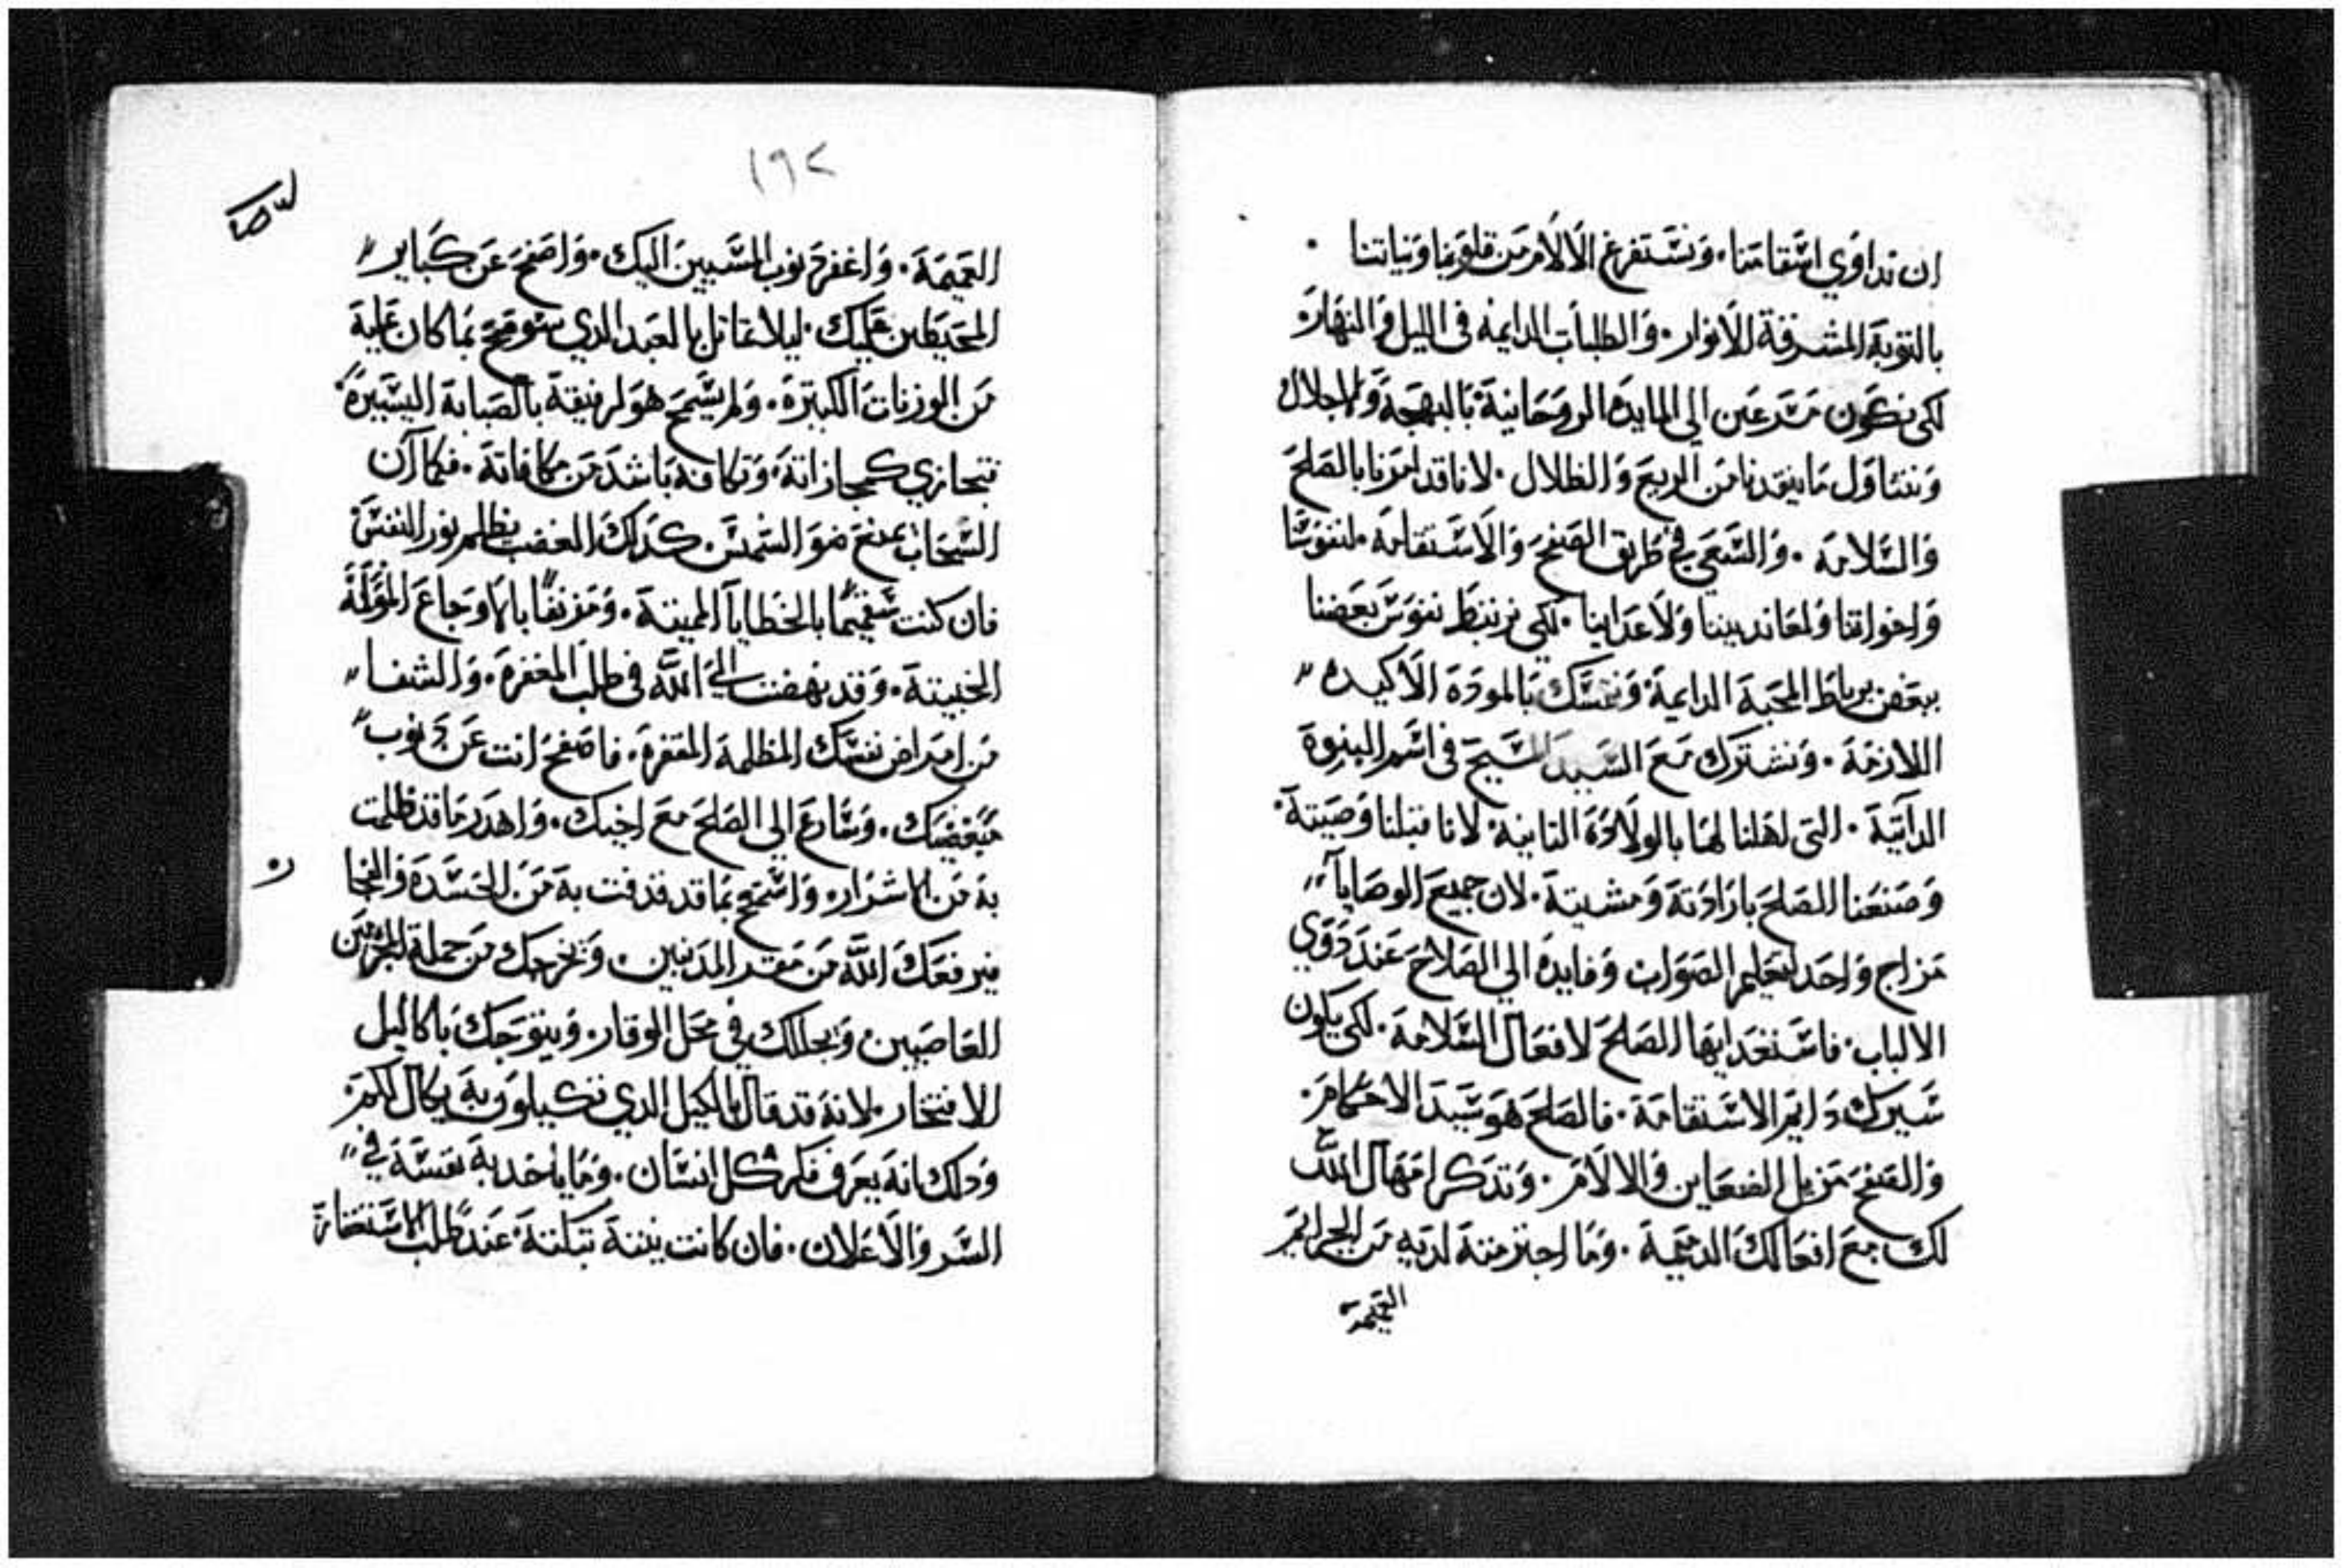 ان نداوي اسقامنا. ونستفرغ الآلام من قلوبنا ونياتنا.
بالتوبة المشرفة للانوار. والطلبات الدايمه في الليل والنهار.
لكي نكون مسرعين الي المايده الروحانية بالبهجة والاجلال
ونتناول ما ينقدنا من الريع والظلال. لانا قد امرنا بالصلح
والسلامه. والسعي في طريق الصفح والاستقامه. لنفوسنا
واخواتنا ولمعاندييننا ولاعداينا. لكي نرتبط نفوس بعضنا
ببعض برباط المحبة الدايمة ونتمسك بالمودة الاكيده
اللازمة. ونشترك مع السيد المسيح في اسم البنوة
الداتية. التي اهلنا لها بالولادة التانية. لانا قبلنا وصيتة.
وصنعنا الصلح بارادتة ومشيتة. لان جميع الوصايا
مزاج واحد لتعليم الصواب وفايده الي الصلاح عند دوي
الالباب. فاستعد ايها الصلح لافعال السلامة. لكي يكون
سيرك دايم الاستقامة. فالصلح هو سيد الاحكام.
والصفح مزيل الضغاين والالام. وتدكر امهال الله
لك مع افعالك الدميمة. وما اجترمتة لديه من الجرايم
العميمة
١٩٢
العميمة. واغفر دنوب المسيين اليك. واصفح عن كباير
المحيطين عليك. ليلا تماتل بالعبد الدي سومح بما كان علية
من الوزنات الكتيرة. ولم يسمح هو لرفيقة بالصبابة اليسيرة.
فتجازي كمجازاتة. وتكافه باشد من مكافاتة. فكما ان
السحاب يمنع ضو الشمس. كدلك الغضب يظلم نور النفس
فان كنت سقيما بالخطايا المميتة. ومزنقا بالاوجاع المولمة
الخبيتة. وقد نهضت الي الله في طلب المغفرة. والشفا
من امراض نفسك المظلمة المقفرة. فاصفح انت عن دنوب
مبغضيك. وسارع الي الصلح مع اخيك. واهدر ما قد ظلمت
بة من الاشرار. واسمح بما قد قدفت بة من الحسدة والفجار
فيرفعك الله من مقر المدنبين. ويخرجك من جملة المجرمين
العاصيين. ويجللك في محل الوقار. ويتوجك باكاليل
الافتخار. لانة قد قال بالكيل الدي تكيلون بة يكال لكم.
ودلك انة يعرف فكر كل انسان. وما ياخد بة نفسة في
السر والاعلان. فان كانت نيتة تبكتة عند طلب الاستغفار